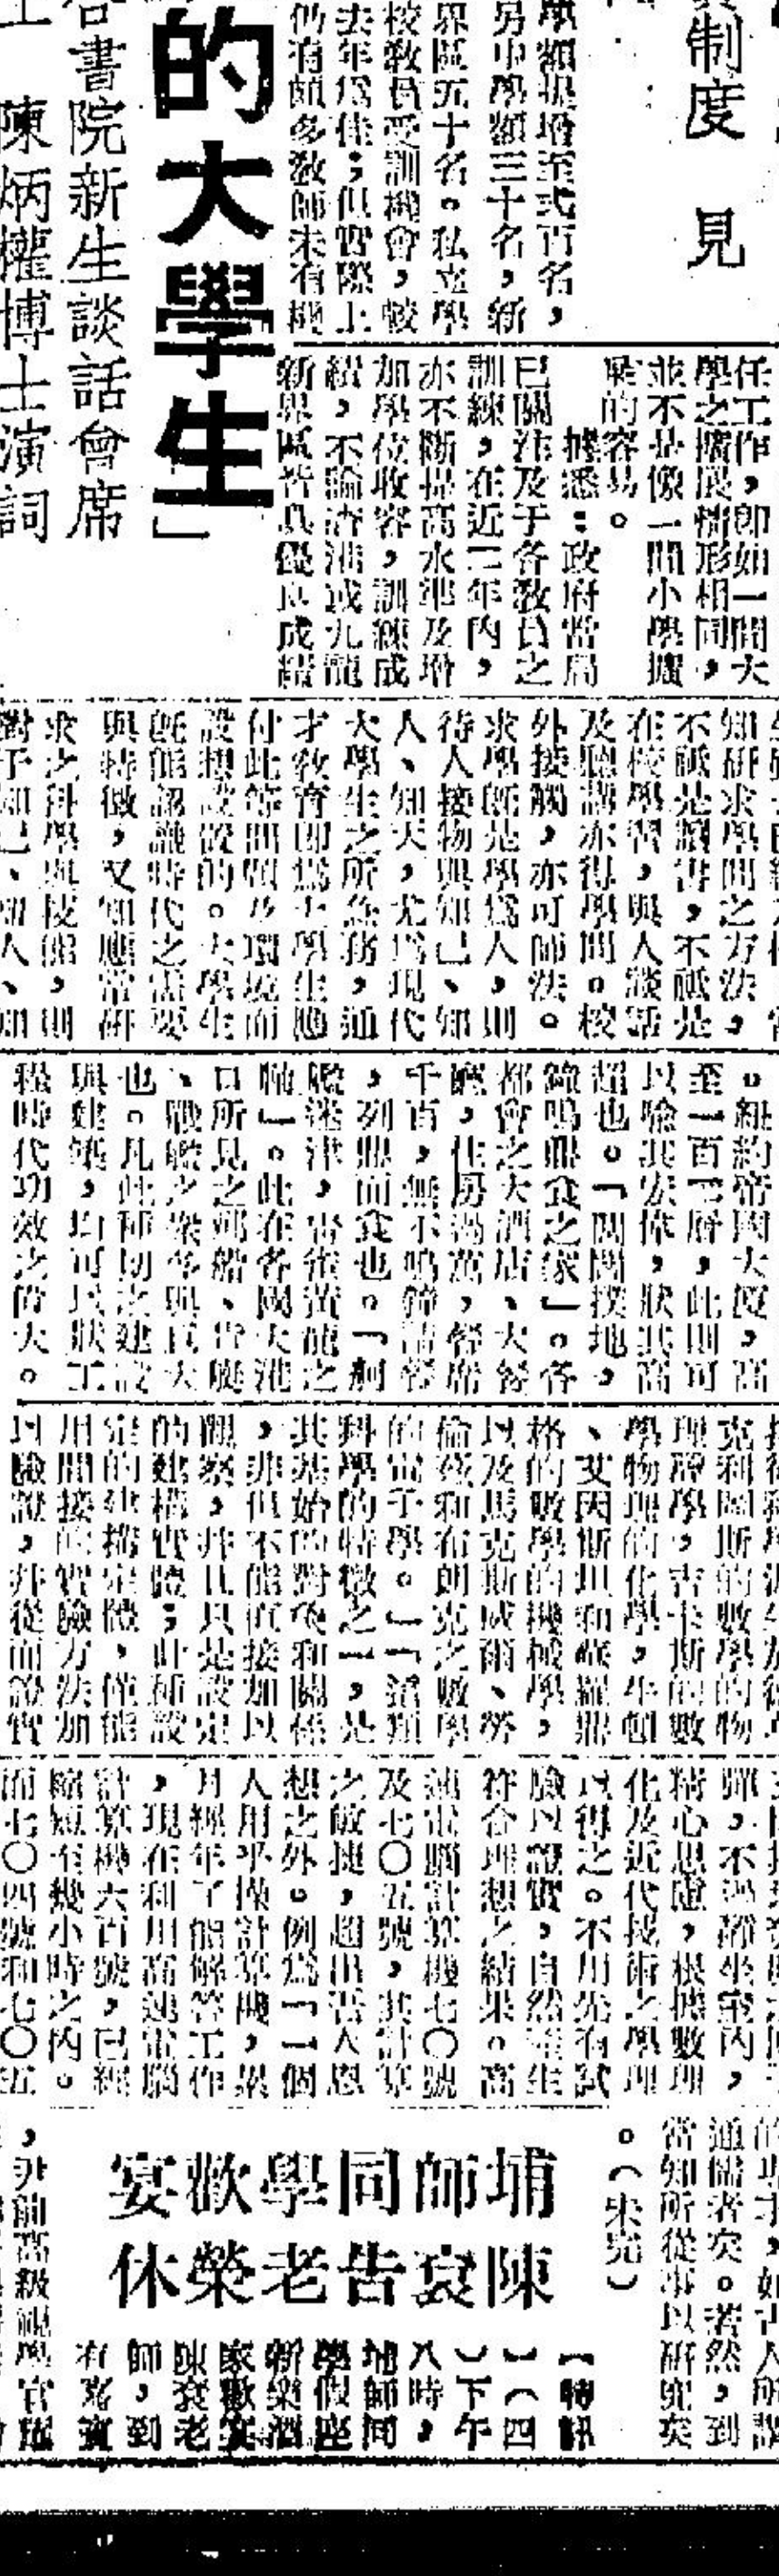 制度 見
學額提增至弍百名，
另中學額三十名，新
界區五十名。私立學
校教員受訓機會，較
去年爲佳；但實際上
仍有頗多教師未有機
任工作，卽如一間大
學之擴展情形相同，
並不是像一間小學擴
展的容易。
據悉：政府當局
已關注及于各教員之
訓練，在近二年內，
亦不斷提高水準及增
加學位收容，訓練成
績，不論香港或九龍
新界區皆具優良成績
的大學生」
書院新生談話會席
陳炳權博士演詞
知研求學問之方法，
不祗是讀書，不祗是
在校學習，與人談話
及聽講亦得學問。校
外接觸，亦可師法。
求學旣是學爲人，則
待人接物與知己、知
人、知天，尤爲現代
大學生之所急務，通
才教育卽爲大學生應
付此等問題及環境而
設想設置的。大學生
旣能認識時代之需要
與特徵，又知應當研
求之科學與技能，則
對于知己、知人、知
。紐約帝國大厦，高
至一百二層，此則可
以喻其宏偉，狀其高
超也。「閭閻撲地，
鐘鳴鼎食之家」。各
都會之大酒店、大餐
廳，住房過萬，餐席
千百，無不鳴鐘請餐
，列鼎而食也。「舸
艦迷津，靑雀黃龍之
舳」。此在各國大港
口所見之郵船、遊艇
、戰艦之衆多與巨大
也。凡此種切之建設
與建築，均可以狀工
程時代功效之偉大。
克利阿斯的數學的物
理學，吉卡斯的數
學物理的化學，牛頓
、艾因斯坦和薛羅鼎
格的數學的機械學，
以及馬克斯威爾、勞
倫茲和布朗克之數學
的電子學。」「這類
科學的特徵之一，是
其基始的對象和關係
，非但不能直接加以
觀察，并且只是設定
的建構實體；此種設
定的建構定體，僅能
用間接的實驗方法加
以驗證，并從而證實
輝，不過靜坐室內，
精心思慮，根據數理
化及近代技術之學理
以得之。不用先有試
驗以證實，自然產生
符合理想之結果。高
速電腦計算機七〇號
及七〇五號，其計算
之敏捷，超出吾人思
想之外。例爲「一個
人用手操計算機，累
月經年才能解答工作
，現在利用高速電腦
計算機六百號，已經
縮短至幾小時之內。
而七〇四號和七〇五
通儒者矣。若然，到
當知所從事以研究矣
。（未完）
埔師同學歡宴
陳袞告老榮休
【特訊
】（四
）下午
八時，
埔師同
學假座
新樂酒
家歡宴
陳袞老
師，到
有嘉賓